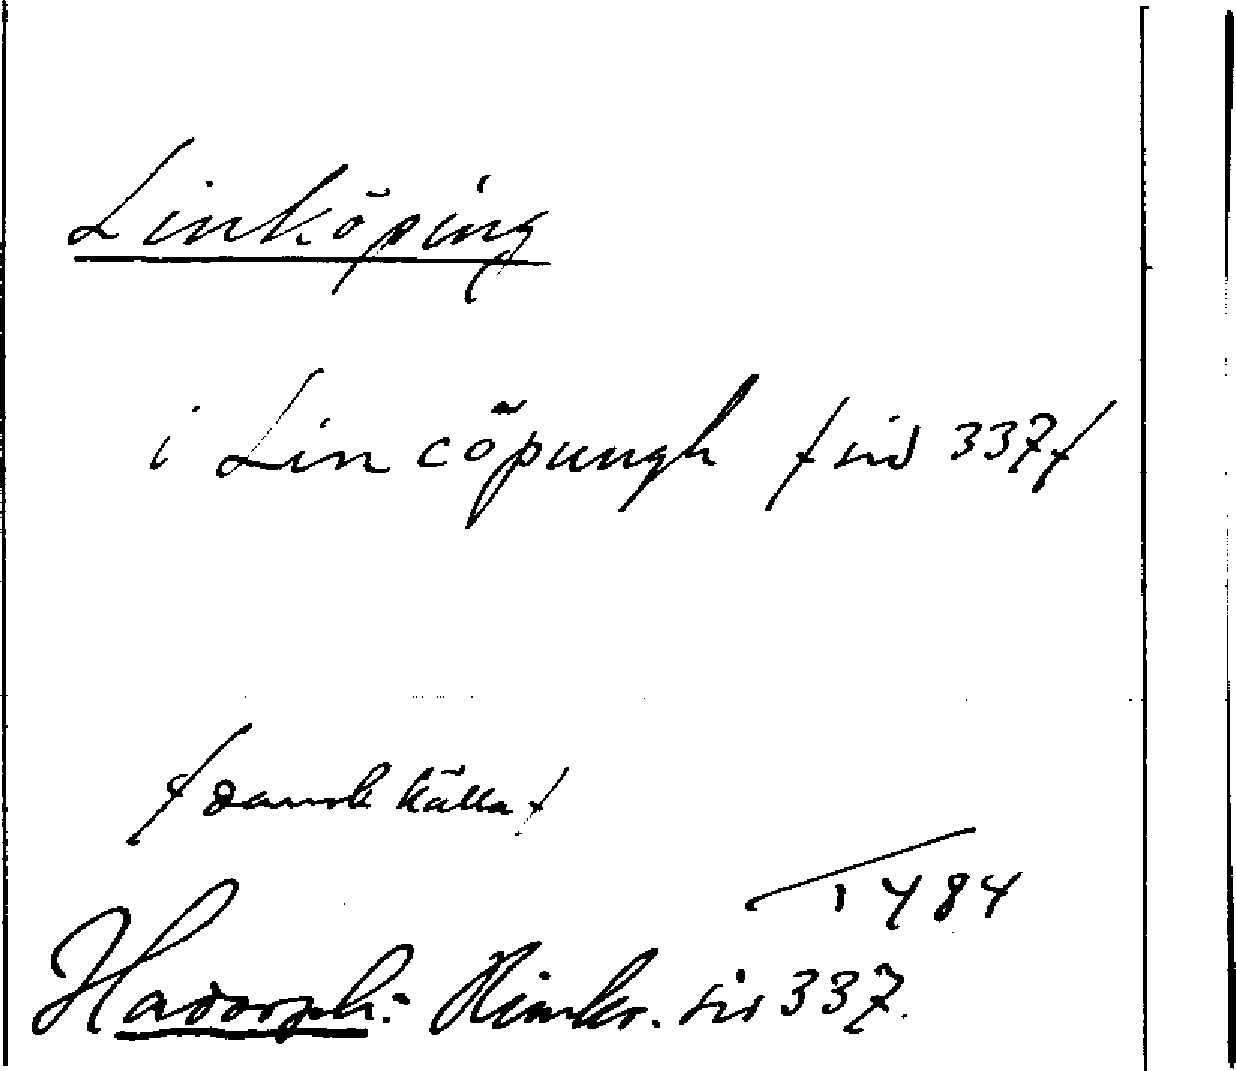 Linköping
i Lincöpungh / sid 337 /
/ dansk källa /
1484
Hadorph: Rimkr. sid 337.